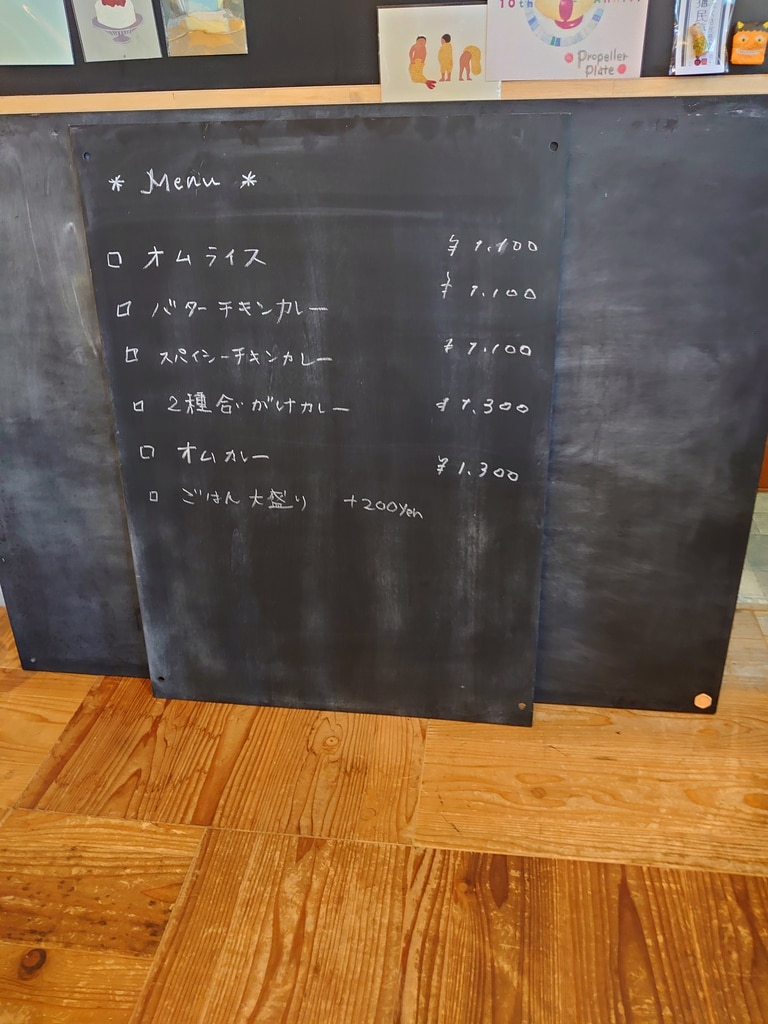 10th
Propeller
Plate
* Menu *
□ オムライス ¥1.100
□ バターチキンカレー ¥1.100
□ スパイシーチキンカレー ¥1.100
□ 2種合いがけカレー ¥1.300
□ オムカレー ¥1.300
□ ごはん大盛り +200Yen